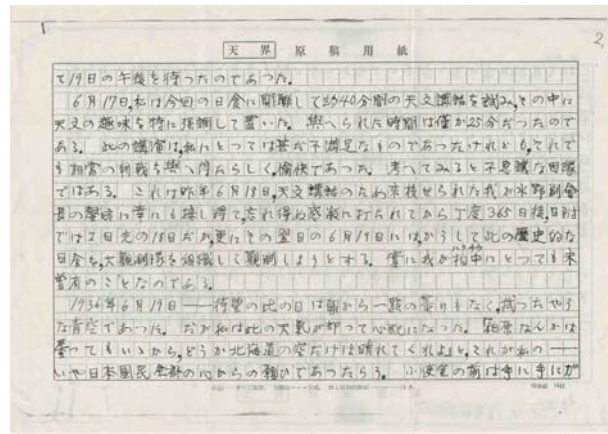 2,
天界 原稿用紙
て19日の午後を待つたのであつた。
6月17日,私は今回の日食に関聯して約40分間の天文講話を試み,その中に
天文の趣味を特に強調して置いた。 與へられた時間は僅か25分だつたので
ある。 此の講演は,私にとつては甚だ不満足なものであつたけれども,それで
も相當の刺戟を與へ得たらしく,愉快であつた。 考へてみると不思議な因縁
ではある。 これは昨年6月18日,天文講話のため来校せられた我が水野副會
長の謦咳に幸にも接し得て,忘れ得ぬ感激に打たれてから丁度365日後,日附
では 日先の18日だが,更にその翌日の6月19日には,かうして此の歴史的な
日食を,大観測隊を組織して観測しようとする。 實に我が柏中にとつても未
曾有のことなのである。
1936年6月19日──待望の此の日は朝から一點の曇りもなく,拭つたやう
な青空であつた。 だが私は此の天氣が却つて心配になつた。「柏原なんかは
曇つてもいゝから,どうか北海道の空だけは晴れてくれよ」と,これが私の──
いや日本國民全部の心からの願ひであつたらう。 小使室の前は手に手にガ